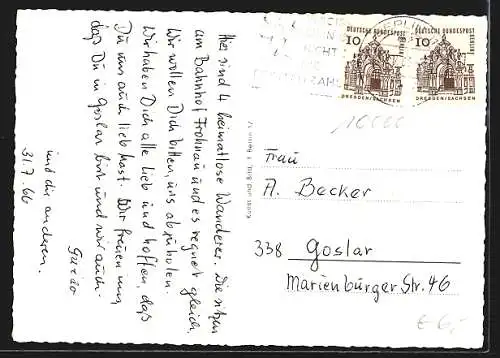 Hier sind 4 heimatlose Wanderer. Sie sitzen
am Bahnhof Frohnau und es regnet gleich.
Wir wollen Dich bitten, uns abzuholen.
Wir haben Dich alle lieb und hoffen, daß
Du uns auch lieb hast. Wir freuen uns
daß Du in Goslar bist und wir auch.
und die anderen.
31.7.66
DEUTSCHE BUNDESPOST
BERLIN
10
DRESDEN/SACHSEN
DEUTSCHE BUNDESPOST
BERLIN
10
DRESDEN/SACHSEN
BERLIN
NICHT
Frau
A. Becker
338 Goslar
Marienburger Str. 46
€ 6,-